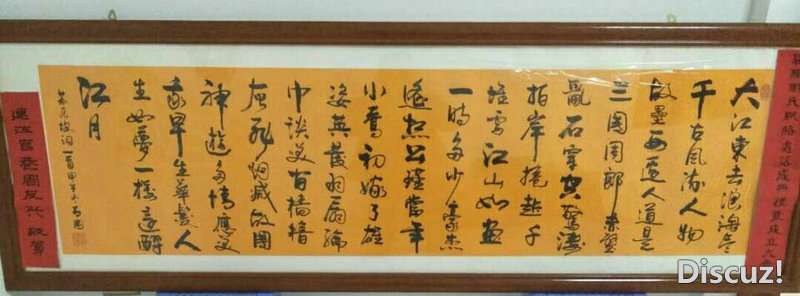 大江東去浪淘盡
千古風流人物
故壘西邊人道是
三國周郎赤壁
亂石穿空驚濤
拍岸捲起千
堆雪江山如畫
一時多少豪杰
遙想公瑾當年
小喬初嫁了雄
姿英發羽扇綸
巾談笑間檣櫓
灰飛烟滅故國
神遊多情應笑
我早生華髮人
生如夢一樽還酹
江月
坡詞一首甲午
氏聯絡處落成典禮暨成立大會
連江官
敬賀
Discuz!